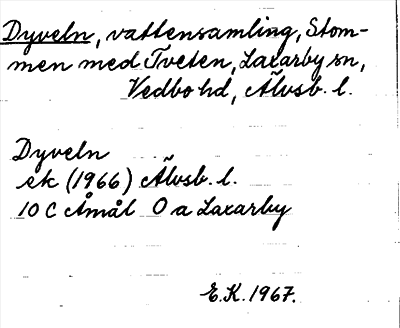 Dyveln, vattensamling, Stom-
men med Tveten, Laxarby sn,
Vedbo hd, Älvsb. l.
Dyveln
ek (1966) Älvsb. l.
10 C Åmål O a Laxarby
E.K. 1967.